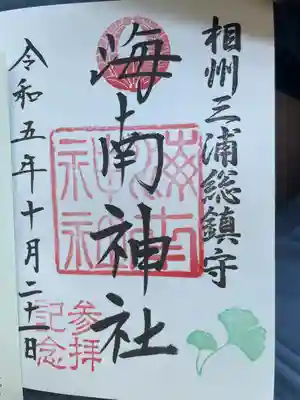 相州三浦総鎮守
海南神社
海南神社
参拝
記念
令和五年十月二十一日